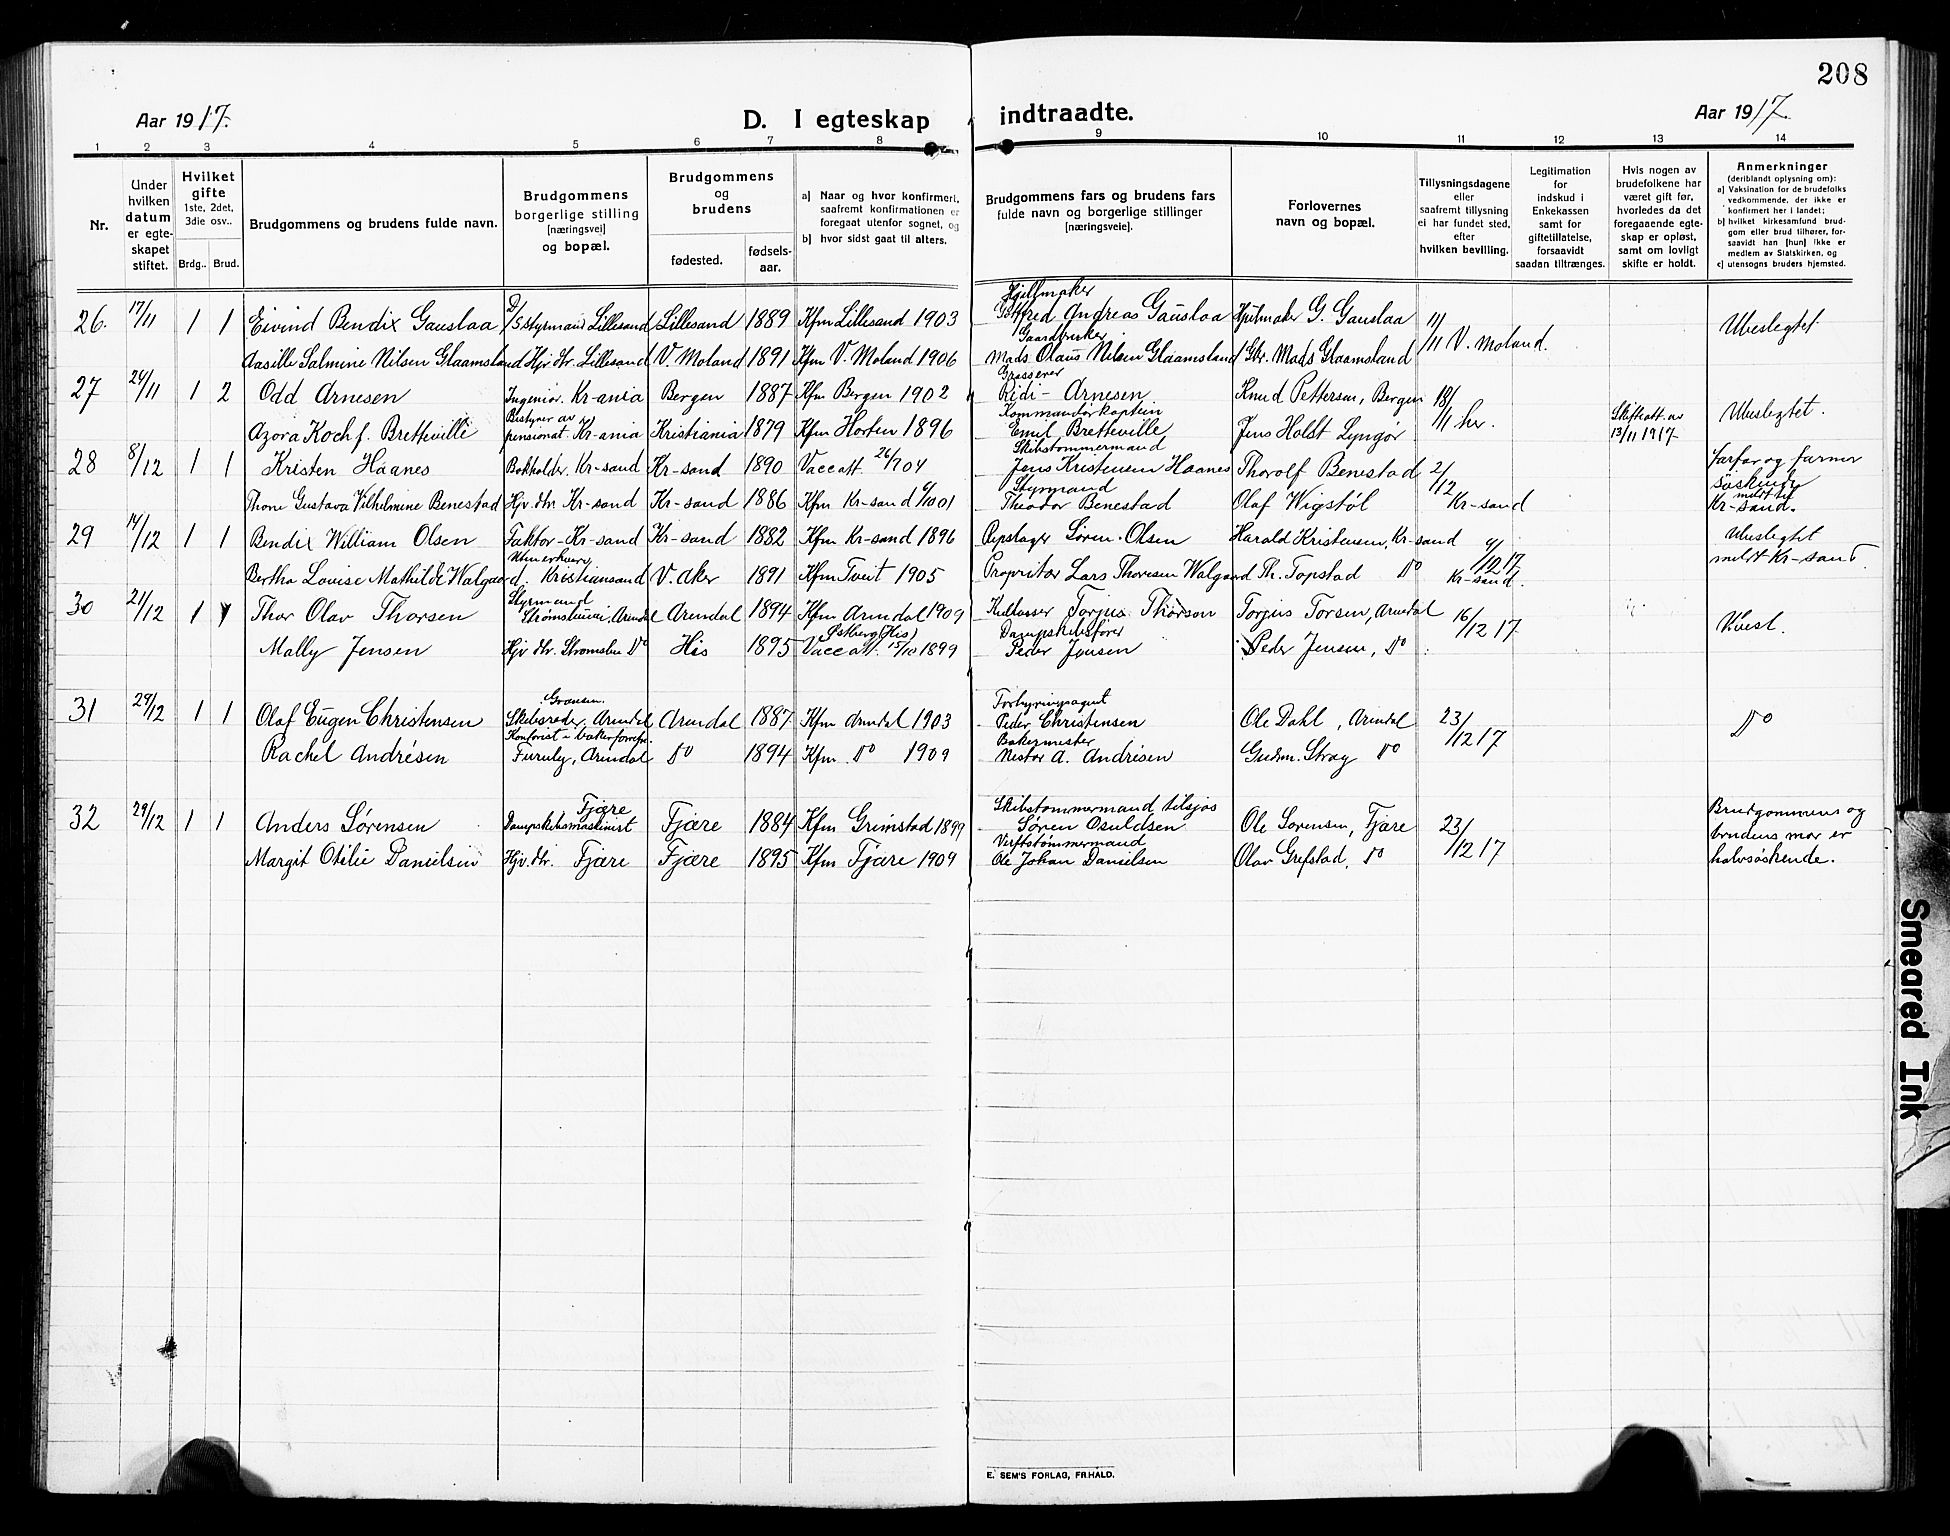 208
Aar 1917.
D. I egteskap indtraadte.
Aar 1917.
1 2 3 4 5 6 7 8 9 10 11 12 13 14
Nr.
Under hvilken datum er egteskapet stiftet.
Hvilket gifte 1ste, 2det, 3die osv..
Brdg.. Brud.
Brudgommens og brudens fulde navn.
Brudgommens borgerlige stilling [næringsvei] og bopæl.
Brudgommens og brudens
fødested.
fødselsaar.
a] Naar og hvor konfirmert, saafremt konfirmationen er foregaat utenfor sognet, og
b] hvor sidst gaat til alters.
Brudgommens fars og brudens fars fulde navn og borgerlige stillinger [næringsveie].
Forlovernes navn og bopæl.
Tillysningsdagene eller saafremt tillysning ei har fundet sted, efter hvilken bevilling.
Legitimation for indskud i Enkekassen samt for giftetillatelse, forsaavidt saadan tiltrænges.
Hvis nogen av brudefolkene har været gift før, hvorledes da det foregaaende egteskap er opløst, samt om lovligt skifte er holdt.
Anmerkninger (deriblandt oplysning om): a] Vaksination for de brudefolks vedkommende, der ikke er konfirmert her i landet; b] hvilket kirkesamfund brudgom eller brud tilhører, forsaavidt han [hun] ikke er medlem av Statskirken, og c] utensogns bruders hjemsted.
26. 17/11 1 1 Eivind Bendix Gauslaa D/S styrmand Lillesand Lillesand 1889 Kfm Lillesand 1903 Hjulmaker Gotfred Andreas Gauslaa Hjulmaker G. Gauslaa 11/11 V. Moland. Ubeslegtet
Aasille Salmine Nilsen Glaamsland Hjv. dtr. Lillesand V. Moland 1891 Kfm V. Moland 1906 Gaardbruker Mads Olaus Nilsen Glaamsland Gbr. Mads Glaamsland
27 24/11 1 2 Odd Arnesen Ingeniør. Kr-ania Bergen 1887 Kfm Bergen 1902 Grosserer Ridi- Arnesen Knud Pettersen, Bergen 18/11 her. Ubeslegtet.
Azora Koch f. Bretteville Bestyrer av pensionat. Kr-ania Kristiania 1879 Kfm Horten 1896 Kommandørkaptein Emil Bretteville Jens Holst Lyngør Skifteatt. av 13/11 1917.
28 8/12 1 1 Kristen Haanes Bokholder. Kr-sand Kr-sand 1890 Vaccatt 26/7 04 Skibstømmermand Jens Kristensen Haanes Thorolf Benestad 2/12 Kr-sand farfar og farmor søskende meldt til Kr-sand.
Thone Gustava Vilhelmine Benestad Hjv. dtr. Kr-sand Kr-sand 1886 Kfm Kr-sand 6/10 01 Styrmand Theodor Benestad Olaf Wigstøl
29 14/12 1 1 Bendix William Olsen Faktor-Kr-sand Kr-sand 1882 Kfm Kr-sand 1896 Repslager Søren Olsen Harald Kristensen, Kr-sand 9/12 17 Kr-sand. Ubeslegtet meldt Kr-sand.
Bertha Lovise Mathilde Walgaard. Uten erhverv Kristiansand V. Aker 1891 Kfm Tveit 1905 Proprietør Lars Thoresen Walgaard Th. Topstad Do
30 21/12 1 1 Thor Olav Thorsen Styrmand Strømsbuvei, Arendal Arendal 1894 Kfm Arendal 1909 Torjus Thorson Torjus Torsen, Arendal 16/12 17. Ubesl.
Mally Jensen Hjv dtr. Strømsbu Do His 1895 Vaccatt. 15/10 1899 Dampskibsfører Peder Jensen Peder Jensen, Do
31 29/12 1 1 Olaf Eugen Christensen Skibsreder, Arendal Arendal 1887 Kfm Arendal 1903 Forhyringsagent Peder Christensen Ole Dahl, Arendal 23/12 17 Do
Rachel Andrésen Furuly, Arendal Do 1894 Kfm. Do 1909 Bakermester Nestor A. Andrésen Gudm. Stray Do
32 29/12 1 1 Anders Sørensen Fjære Dampskibsmaskinist Fjære 1884 Kfm Grimstad 1899 Skibstømmermand tilsjøs Søren Osuldsen Ole Sørensen, Fjære 23/12 17 Brudgommens og brudens mor er halvsøskende.
Margit Otilie Danielsen Hjv. dtr. Fjære Fjære 1895 Kfm Fjære 1909 Verftstømmermand Ole Johan Danielsen Olav Grefstad, Do
E. SEM'S FORLAG, FR.HALD.
Smeared Ink